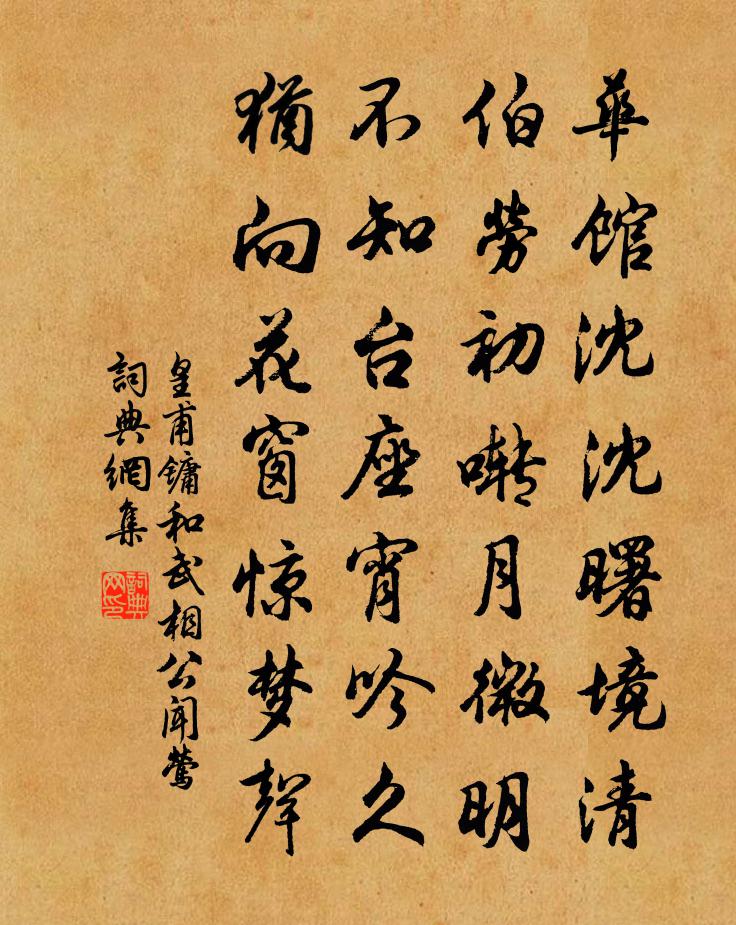 華館沈沈曙境清
伯勞初囀月微明
不知台座宵吟久
猶向花窗惊梦聲
皇甫鏞和武相公闻鶯
詞典網集
詞典网印